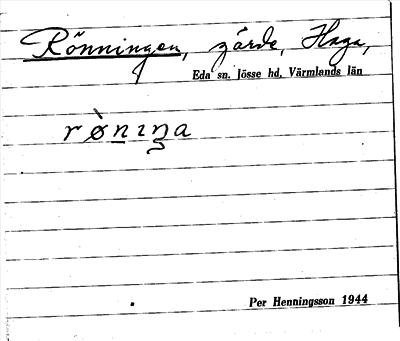 Rönningen, gärde, Haga,
Eda sn. Jösse hd. Värmlands län
rø̀nıŋa
Per Henningsson 1944